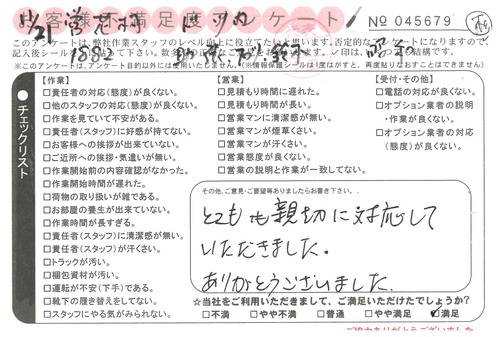 お客様ご満足度アンケート
№ 045679
このアンケートは、弊社作業スタッフのレベル向上に役立てたいと思います。否定的な
記入後シール
結構です。
(※このアンケートは、アンケート目的以外には使用いたしません。)(※情報保護シール1度はがすと、再度貼りなおすことはできません)
11/21
1882
チェックリスト
【作業】
□責任者の対応(態度)が良くない。
□他のスタッフの対応(態度)が良くない。
□作業を見ていて不安がある。
□責任者(スタッフ)に好感が持てない。
□お客様への挨拶が出来ていない。
□ご近所への挨拶・気遣いが無い。
□作業開始前の内容確認がなかった。
□作業開始時間が遅れた。
□荷物の取り扱いが雑である。
□お部屋の養生が出来ていない。
□作業時間が長すぎる。
□責任者(スタッフ)に清潔感が無い。
□責任者(スタッフ)が汗くさい。
□トラックが汚い。
□梱包資材が汚い。
□運転が不安(下手)である。
□靴下の履き替えをしてない。
□スタッフにやる気がみられない。
【営業】
□見積もり時間に遅れた。
□見積もり時間が長い。
□営業マンに清潔感が無い。
□営業マンが煙草くさい。
□営業マンが汗くさい。
□営業態度が良くない。
□営業の説明と作業が一致してない。
【受付・その他】
□電話の対応が良くない。
□オプション業者の説明
・作業が良くない。
□オプション業者の対応
(態度)が良くない。
その他、ご意見・ご要望等ありましたらお書き下さい。
とても親切に対応して
いただきました。
ありがとうございました。
☆当社をご利用いただきまして、ご満足いただけたでしょうか?
□不満 □やや不満 □普通 □やや満足 ☑満足
ご協力ありがとうございました